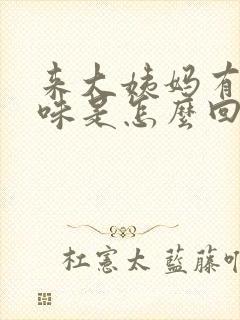 来大姨妈有
味是怎麼回
杜憲太 藍藤